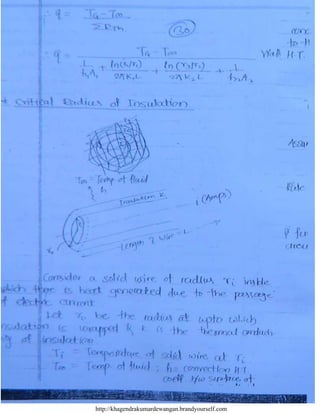 ∴ q = Ta - T∞
ΣRth
(130)
∴ q = Ta - T∞
1/h₁A₁ + ln(r₂/r₁)/2πk₁L + ln(r₃/r₂)/2πk₂L + 1/h₂A₂
with H.T.
Critical Radius of Insulation
T∞ = Temp of fluid
h
Insulation k
i (Amps)
Length of wire = L
Consider a solid wire of radius ri inside
which there is heat generated due to the passage
of electric current
Let r₀ be the radius at upto which
insulation is wrapped & k is the thermal conducti
ty of insulation
Ti = Temperature of solid wire at ri
T∞ = Temp of fluid ; h = convection H.T.
coeff b/w surface at
http://khagendrakumardewangan.brandyourself.com